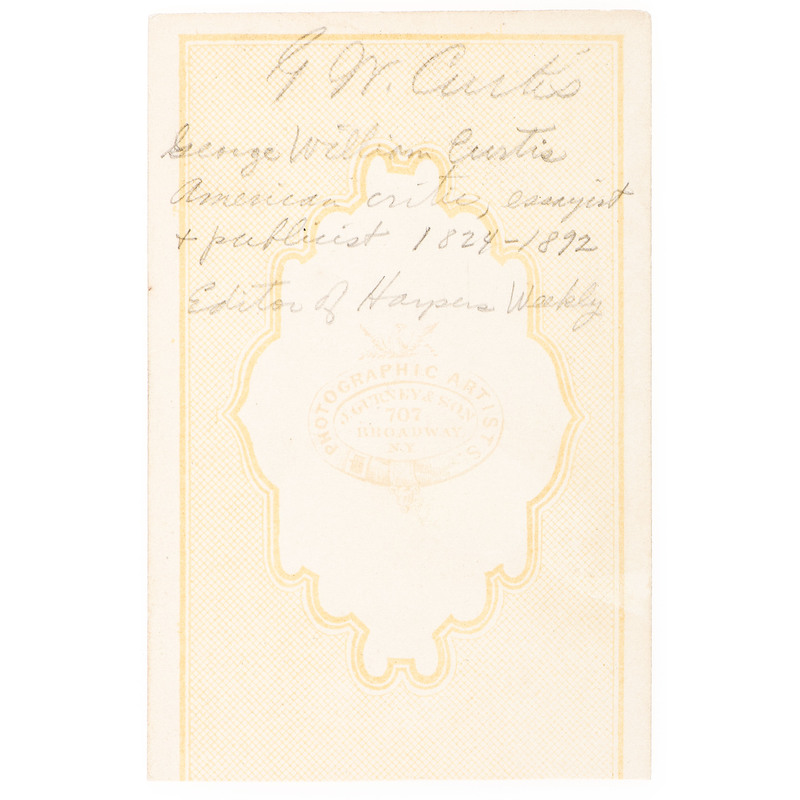 G W. Curtis
George William Curtis
American critic, essayist
+ publicist 1824-1892
Editor of Harpers Weekly
PHOTOGRAPHIC ARTISTS
J. GURNEY & SON
707
BROADWAY,
N.Y.